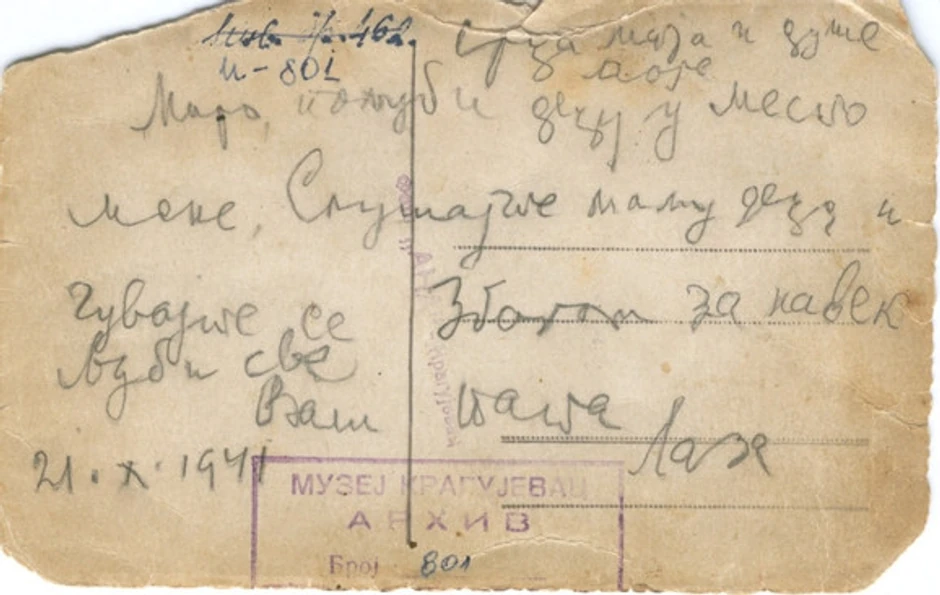 Инв. Бр. 462.
И-801
Срца моја и душе
моје
Маро, пољуби децу у место
мене, Слушајте маму децо и
Чувајте се Збогом за навек
Љуби све
Ваш папа
Лаза
21. X. 1941
МУЗЕЈ КРАГУЈЕВАЦ
АРХИВ
Број 801